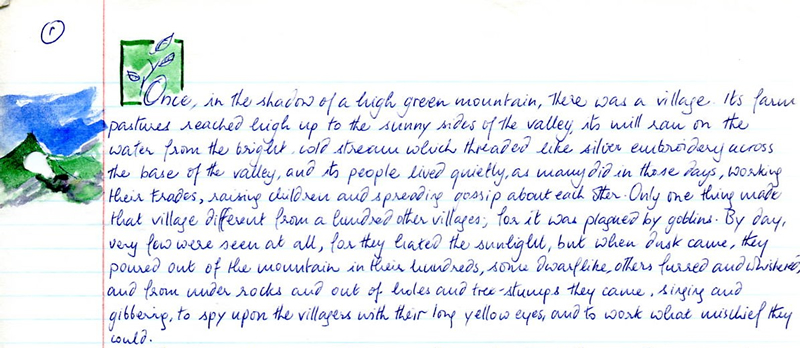 1
Once, in the shadow of a high green mountain, there was a village. Its farm
pastures reached high up to the sunny sides of the valley, its mill ran on the
water from the bright cold stream which threaded like silver embroidery across
the base of the valley, and its people lived quietly, as many did in those days, working
their trades, raising children and spreading gossip about each other. Only one thing made
that village different from a hundred other villages; for it was plagued by goblins. By day,
very few were seen at all, for they hated the sunlight, but when dusk came, they
poured out of the mountain in their hundreds, some dwarflike, others furred and whiskered,
and from under rocks and out of holes and tree-stumps they came, singing and
gibbering, to spy upon the villagers with their long yellow eyes, and to work what mischief they
could.